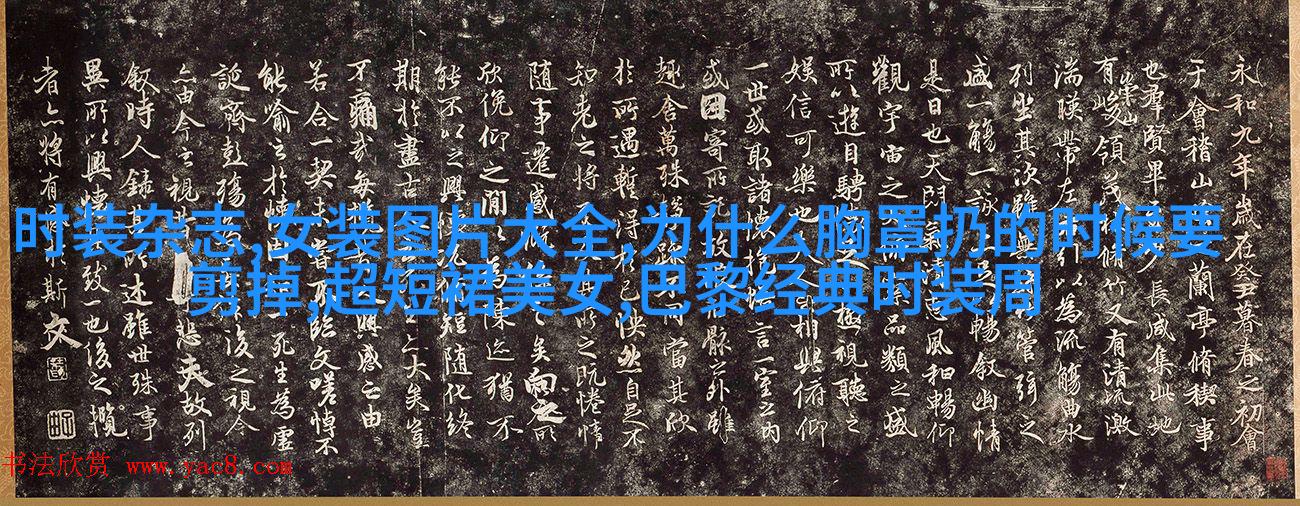 永和九年歲在癸丑暮春之初會
于會稽山蘭亭脩稧事
也羣賢畢長咸集此地
有崇山峻領茂脩竹又有清流激
湍暎帶左以為流觴曲水
列坐其次雖無管弦之
盛一觴一詠足暢敘幽情
是日也天朗氣清惠風和暢仰
觀宇宙之品類之盛
所以遊目騁極視聽之
娛信可樂也人相與俯仰
一世或取諸懷抱言一室之內
或因寄所託放骸之外雖
趣舍萬殊同當其欣
於所遇蹔得於己怏然自足不
知老之將所之既惓情
隨事遷感矣向之所
欣俛仰之閒以為陳迹猶不
能不以之興懷況脩短隨化終
期於盡古大矣豈
不痛哉每攬興感之由
若合一契未嘗不臨文嗟悼不
能喻之於懷死生為虛
誕齊彭殤後之視今
亦由今之視昔悲夫故列
敘時人錄其所述雖世殊事
異所以興懷致一也後之攬
者亦將有斯文
时装杂志,女装图片大全,为什么胸罩扔的时候要
剪掉,超短裙美女,巴黎经典时装周
书法欣赏 www.yac8.com